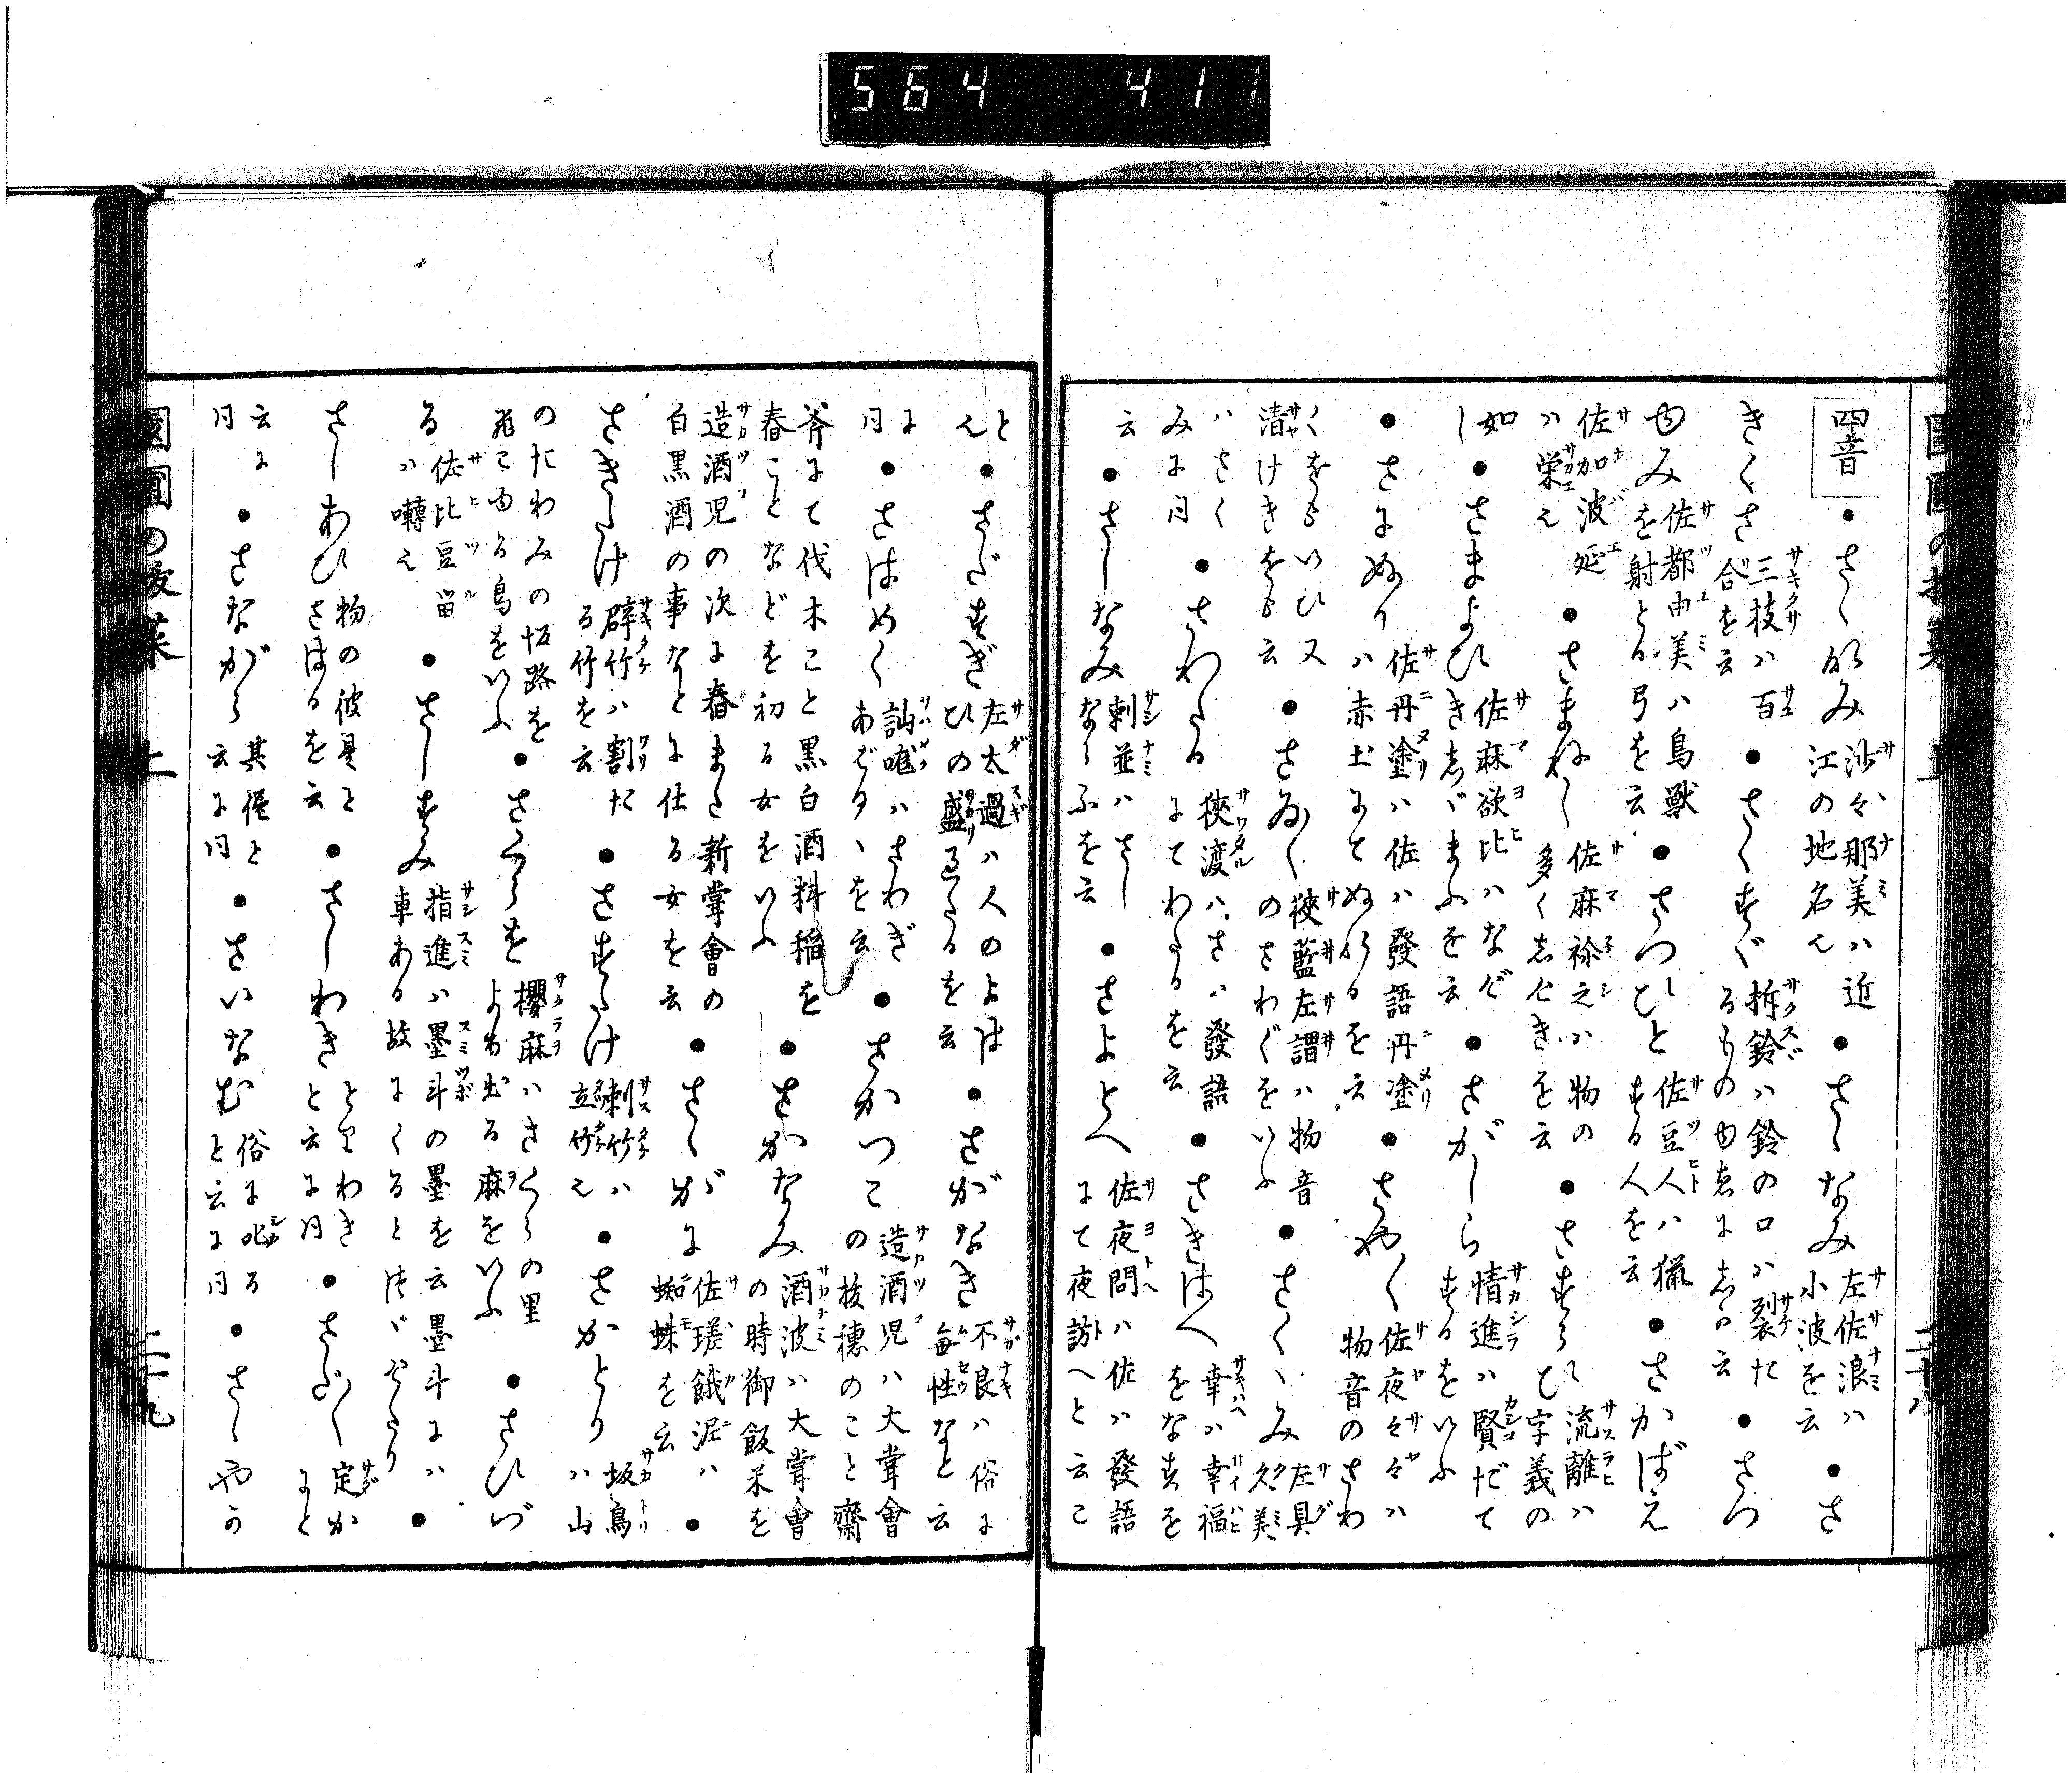 564 411
四音
●さゝなみ 沙々那美ハ近江の地名也 ●さゝなみ 左佐浪ハ小波を云 ●さ
きくさ 三枝ハ百合を云 ●さくすゞ 拆鈴ハ鈴の口ハ裂たるものゆゑにしか云 ●さつ
ゆみ 佐都由美ハ鳥獣を射とる弓を云 ●さつひと 佐豆人ハ猟する人を云 ●さかばえ
佐加波延ハ栄也 ●さまねし 佐麻祢之ハ物の多くしげきを云 ●さすらひ 流離ハ字義の
如し ●さまよひ 佐麻欲比ハなげきさまよふを云 ●さがしら 情進ハ賢だてするをいふ
●さにぬり 佐丹塗ハ佐ハ發語丹塗ハ赤土にてぬれるを云 ●さや〳〵 佐夜々々ハ物音のさわ
〳〵をもいひ又清けきをも云 ●さゐ〳〵 狹藍左謂ハ物音のさわぐをいふ ●さくゝみ 左具久美
ハさくみに同 ●さわたる 狹渡ハさハ發語にてわたるを云 ●さきはへ 幸ハ幸福をなすを
云 ●さしなみ 刺並ハさしならふを云 ●さよとへ 佐夜問ハ佐ハ發語にて夜訪へと云こ
と也 ●さだすぎ 左太過ハ人のよはひの盛過たるを云 ●さがなき 不良ハ俗に無性など云
に同 ●さはめく 訕嚾ハさわぎあざけるを云 ●さかつこ 造酒児ハ大嘗會の抜穂のこと齋
斧にて伐木こと黒白酒料稲を舂ことなどを初る女をいふ ●さかなみ 酒波ハ大嘗會の時御飯米を
造酒児の次に舂また新嘗會の白黒酒の事などに仕る女を云 ●さゝがに 佐瑳餓泥ハ蜘蛛を云 ●
さきたけ 辟竹ハ割たる竹を云 ●さすたけ 刺竹ハ立竹也 ●さかとり 坂鳥ハ山
のたわみの坂路を飛てゆる鳥をいふ ●さくらを 櫻麻ハさくらの里より出る麻をいふ ●さひづ
る 佐比豆留ハ囀也 ●さしすみ 指進ハ墨斗の墨を云墨斗にハ車ある故にくるとつゞけたり ●
さしあひ 物の彼是とさはるを云 ●さしわき とりわきと云に同 ●さだ〳〵 定かにと
云に同 ●さながら 其儘と云に同 ●さいなむ 俗に叱ると云に同 ●さゝやか